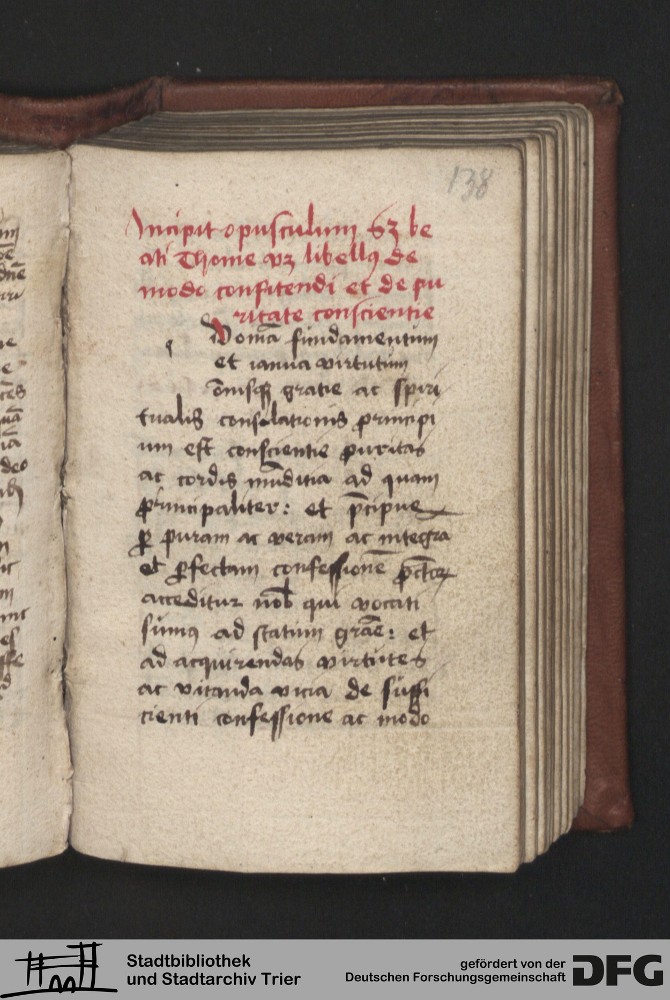 138
Incipit opusculum sꝫ be
ati Thome vꝫ libellꝰ de
modo confitendi et de pu
ritate conscientie
Qoniā fundamentum
et ianua virtutum
omīsqꝫ gratie ac spiri
tualis consolationis principi
um est conscientie puritas
ac cordis mūditia ad quam
principaliter: et p̄cipue
ꝑ puram ac veram ac integra
et ꝑfectam confessionē pctōꝝ
acceditur nob qui vocati
sumꝰ ad statum grāe: et
ad acquirendas virtutes
ac vitanda vicia de suffi
cienti confessione ac modo
Stadtbibliothek
und Stadtarchiv Trier
gefördert von der
Deutschen Forschungsgemeinschaft
DFG